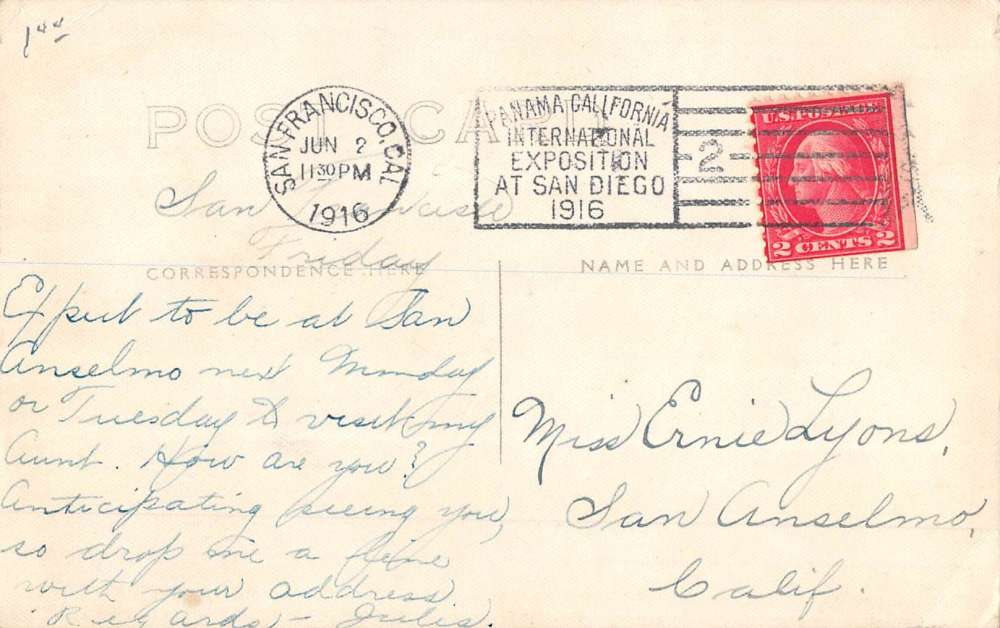 1.00
POST CARD
SAN FRANCISCO, CAL
JUN 2
11 30 PM
1916
PANAMA CALIFORNIA
INTERNATIONAL
EXPOSITION
AT SAN DIEGO
1916
2
U.S. POSTAGE
2 CENTS 2
San Francisco
Friday
CORRESPONDENCE HERE
NAME AND ADDRESS HERE
Expect to be at San
Anselmo next Monday
or Tuesday to visit my
Aunt. How are you?
Anticipating seeing you,
so drop me a line
with your address
Regards – Jules
Miss Ernie Lyons,
San Anselmo,
Calif.